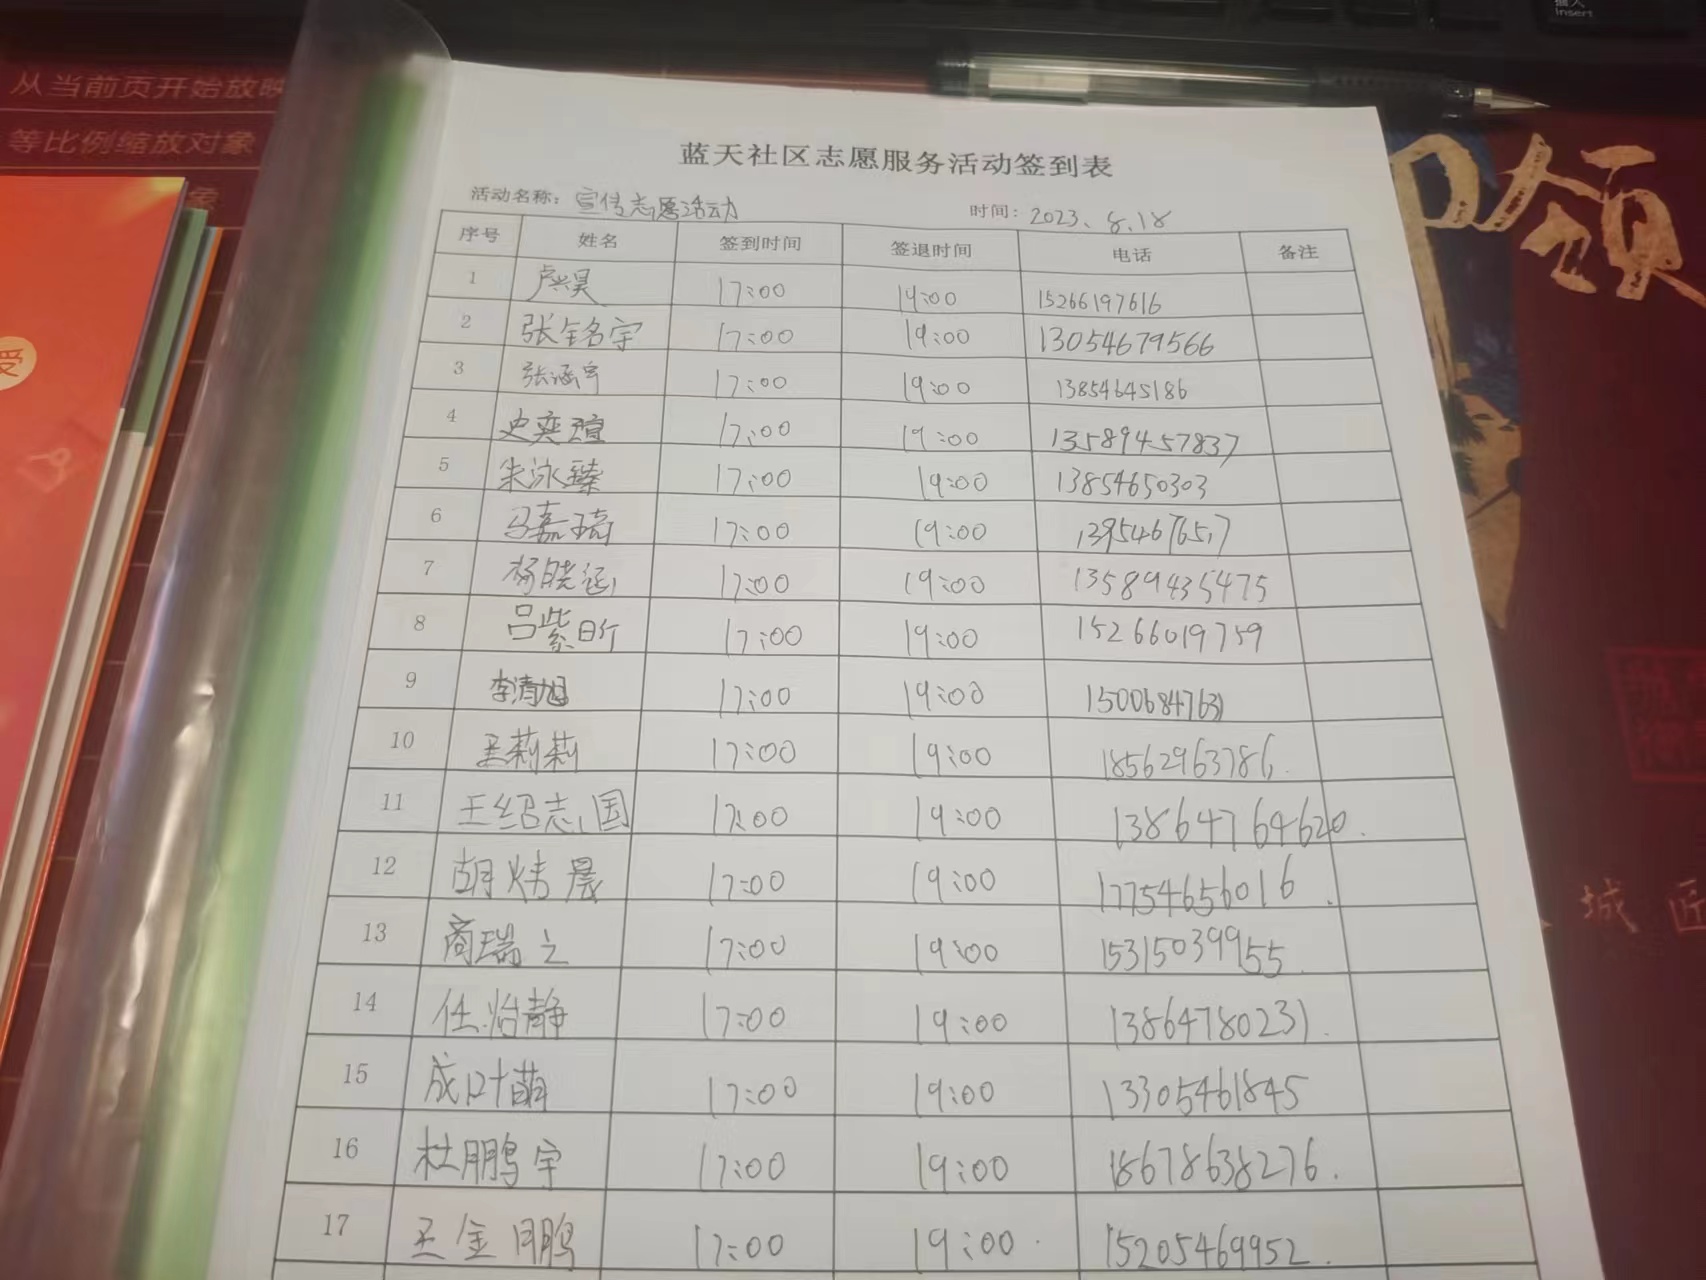 插入
Insert
从当前页开始放映
等比例缩放对象
象
受
领
城 匠
蓝天社区志愿服务活动签到表
活动名称: 宣传志愿活动 时间: 2023、8.18
序号 姓名 签到时间 签退时间 电话 备注
1 卢兴昊 17:00 19:00 15266197616
2 张铭宇 17:00 19:00 13054679566
3 张涵宇 17:00 19:00 13854645186
4 史奕瑄 17:00 19:00 13589457837
5 朱泳臻 17:00 19:00 13854650303
6 马嘉琦 17:00 19:00 1395467657
7 杨晓远 17:00 19:00 13589435475
8 吕紫昕 17:00 19:00 15266019759
9 李清旭 17:00 19:00 15006847631
10 王莉莉 17:00 19:00 18562963786.
11 王绍志国 17:00 19:00 13864764620.
12 胡炜晨 17:00 19:00 17754656016.
13 商瑞之 17:00 19:00 15315039955.
14 任怡静 17:00 19:00 13864780231.
15 成叶萌 17:00 19:00 13305461845
16 杜鹏宇 17:00 19:00 18678638276.
17 王金鹏 17:00 19:00 15205469952.